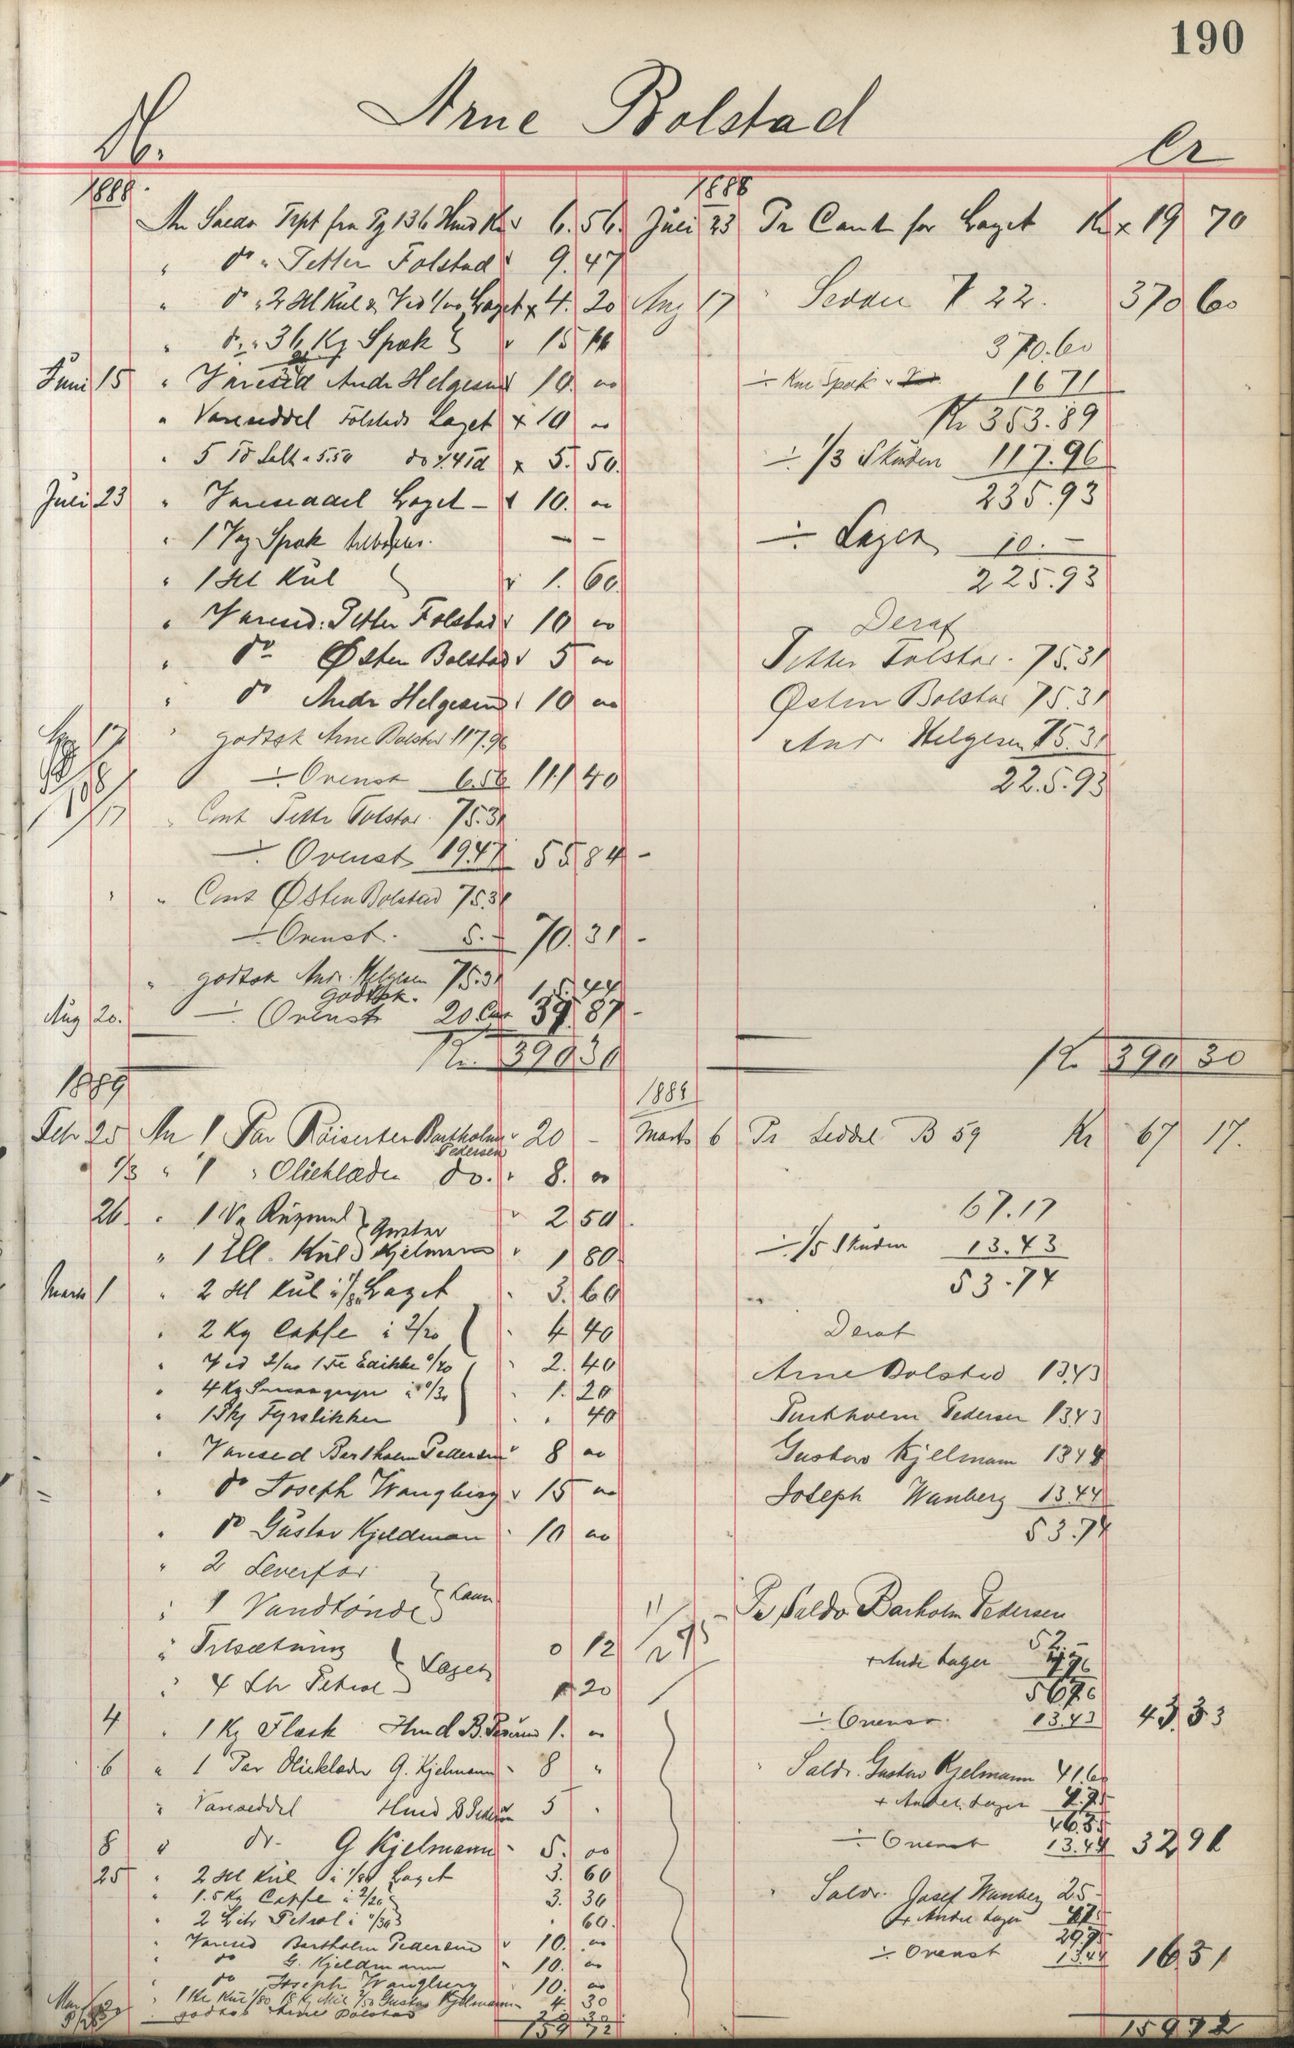 190
Arne Bolstad
Cr
1888
An Saldo Trpt fra Pg 136 Hmd Kr 6.56.
" do " Petter Folstad 9.47
" do " 2 Hl Kul & Ved Laget x 4.20
" do " 36 Kg Spæk 15
Juni 15 " Varesed Andr Helgesen 10.00
" Vareseddel Folstads Laget x 10 00
" 5 Td Salt a 5.50 do x 5.50.
Juli 23 " Vareseddel Laget 10.00
" 1 Vog Spæk — —
" 1 Hl Kul 1.60.
" Varesed: Petter Folstad 10 00
" do Østen Bolstad 5 00
" do Andr Helgesen 10 00
Aug 17 " godtsk Arne Bolstad 117.96
÷ Ovenst 6.56 111 40
17 " Cont Petter Folstad 75.31
÷ Ovenst 19.47 55 84 -
" " Cont Østen Bolstad 75.31
÷ Ovenst. 5.- 70.31 -
" godtsk Andr. Helgesen 75.31 15.44
godtsk.
Aug 20. ÷ Ovenst 20 Cont 39.87 -
Kr. 390 30
1888
Juli 23 Pr Cont for Laget Kr x 19 70
Aug 17 " Seddel 7 22. 370 60
370.60
÷ Kne Spæk 1671
Kr 353.89
÷ 1/3 Skuden 117.96
235.93
÷ Lagen 10.-
225.93
Deraf
Petter Folstad. 75.31
Østen Bolstad 75.31
Andr Helgesen 75.31
225.93
Kr 390 30
1889
Febr 25 An 1 Par Röiserter Bartholm Pedersen 20 -
1/3 " 1 " Olieklæder do. 8.00
26. " 1 Vg Rugmel 2 50
" 1 Hl. Kul Gustav Kjelmann 1 80
Marts 1 " 2 Hl Kul a 1/80 Laget 3.60
" 2 Kg Caffe a 2/20 4 40
" Ved 2/00 1 Fl Edikke 0/40 2.40
" 4 Kg a 0/30 1.20
" 1 Pk Fyrstikker " 40
" Varesed Bartholm Pedersen 8 00
" do Joseph Wangberg 15 00
" do Gustav Kjeldman 10 00
" 2 Leverfar
" 1 Vandtønde Laan
" Tilsætning 0 12
" 4 Ltr Petrol Lagen 1 20
4 " 1 Kg Flæsk Hmd B. Pedersen 1.00
6 " 1 Par Olieklæder G. Kjelmann 8 "
" Vareseddel Hmd B Pedersen 5 "
8 " do- G Kjelmann 5.00
25 " 2 Hl Kul a 1/80 Laget 3.60
" 1.5 Kg Caffe a 2/20 3.30
" 2 Litr Petrol a 0/30 " 60.
" Varesed Bartholm Pedersen 10.00
" do G. Kjeldmann 10.00
" do Joseph Wangberg 10.00
" 1 Hl Kul 1/80 Gustav Kjelmann 4 30
" godtsk Arne Bolstad
159 72
1889
Marts 6 Pr Seddel B 59 Kr 67 17.
67.17
÷ 1/5 Skuden 13.43
53.74
Deraf
Arne Bolsted 13.43
Barthholm Pedersen 1343
Gustav Kjelmann 1344
Joseph Wanberg 13.44
53.74
Pr Saldo Barholm Pedersen
52.-
+ Andr Lager
÷ Ovenst. 13.43 43.33
" Saldo. Gustav Kjelmann 41.60
+ Andel Lager 4.75
46.35
÷ Ovenst 13.44 32 91
" Saldo. Josef Wanberg 25-
+ Andel Lager 4.75
29.75
÷ Ovenst 13.44 16 31
159 72